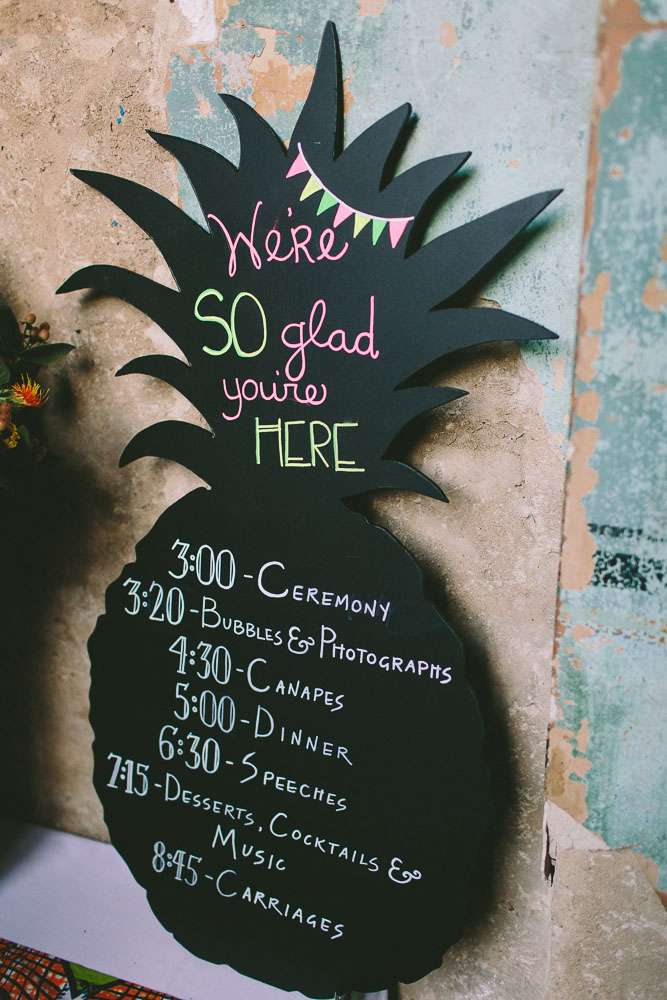 We're
SO glad
you're
HERE
3:00 - CEREMONY
3:20 - BUBBLES & PHOTOGRAPHS
4:30 - CANAPES
5:00 - DINNER
6:30 - SPEECHES
7:15 - DESSERTS, COCKTAILS &
MUSIC
8:45 - CARRIAGES